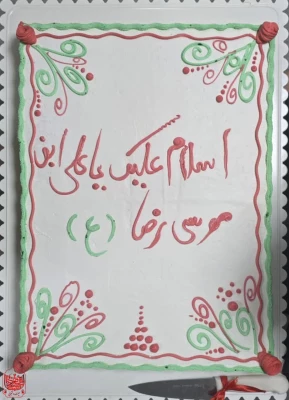 اسلام علیک یا علی ابن
موسی رضا (ع)